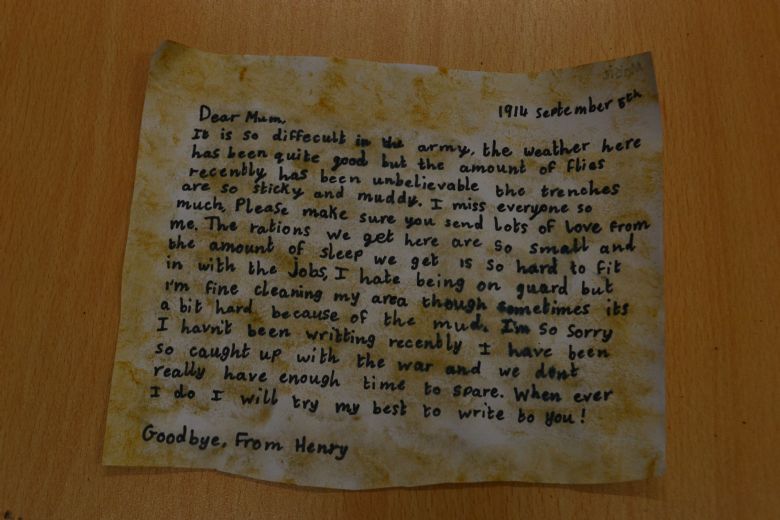 1914 september 5th
Dear Mum,
It is so diffecult in the army, the weather here
has been quite good but the amount of flies
recently has been unbelievable the trenches
are so sticky and muddy. I miss everyone so
much, Please make sure you send lots of love from
me. The rations we get here are so small and
the amount of sleep we get is so hard to fit
in with the jobs, I hate being on guard but
i'm fine cleaning my area though sometimes its
a bit hard because of the mud. I'm so sorry
I havn't been writting recently I have been
so caught up with the war and we dont
really have enough time to spare. When ever
I do I will try my best to write to you!
Goodbye, From Henry